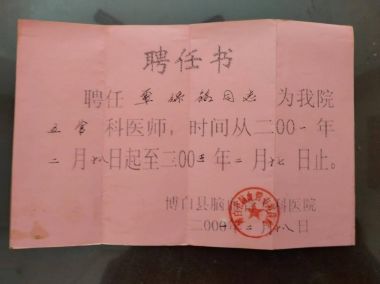 聘任书
聘任 同志 为我院
五官科医师，时间从二00一年
二月十八日起至二00五年二月十七日止。
博白县脑 科医院
二000年二月十八日